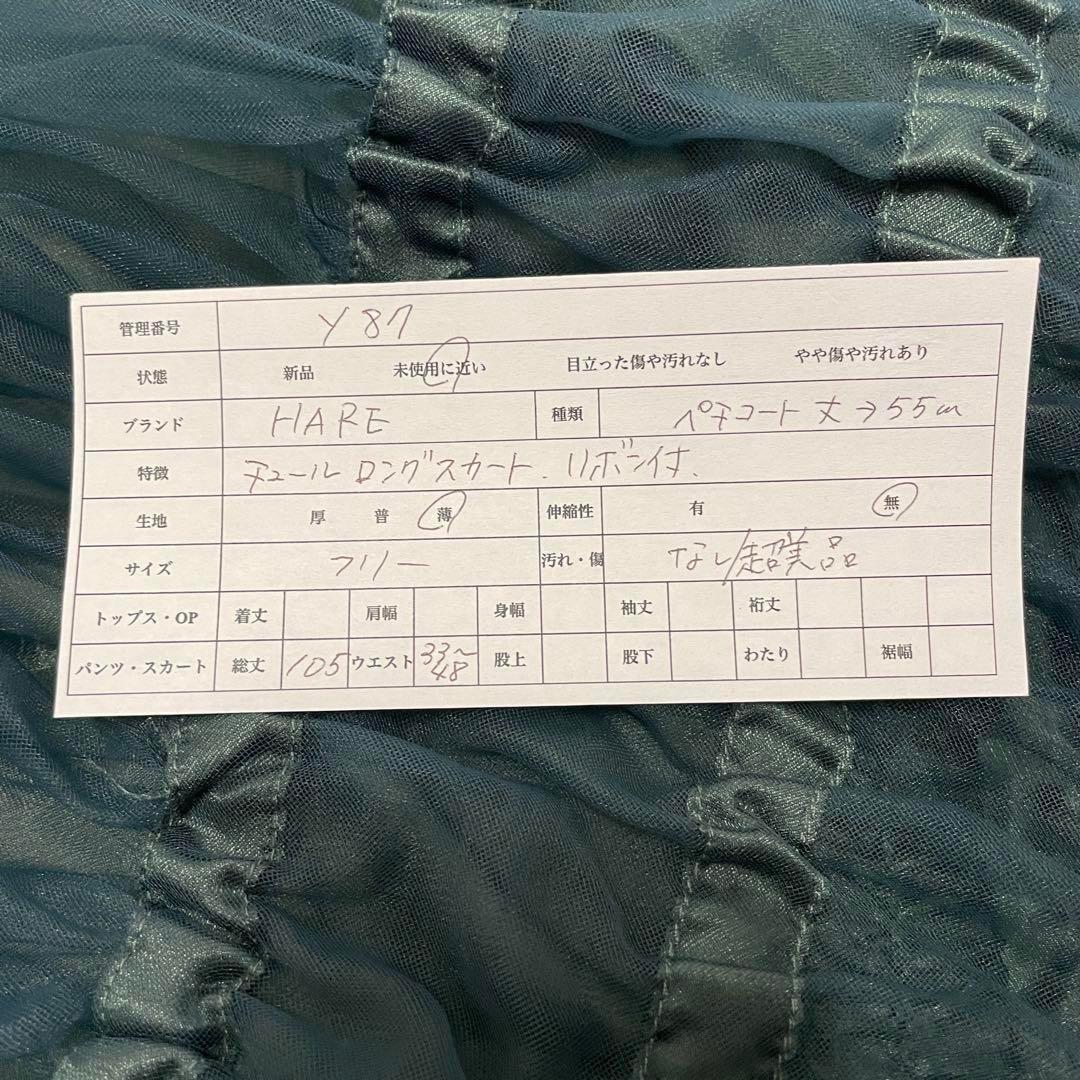 管理番号 Y87
状態 新品 未使用に近い 目立った傷や汚れなし やや傷や汚れあり
ブランド HARE 種類 ペチコート丈→55cm
特徴 チュールロングスカート、リボン付、
生地 厚 普 薄 伸縮性 有 無
サイズ フリー 汚れ・傷 なし/超美品
トップス・OP 着丈 肩幅 身幅 袖丈 裄丈
パンツ・スカート 総丈 105 ウエスト 33〜48 股上 股下 わたり 裾幅